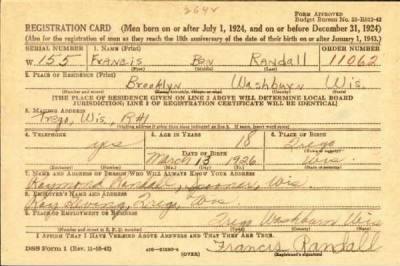 2644
FORM APPROVED
Budget Bureau No. 33-R012-42
REGISTRATION CARD (Men born on or after July 1, 1924, and on or before December 31, 1924)
(Also for the registration of men as they reach the 18th anniversary of the date of their birth on or after January 1, 1943.)
SERIAL NUMBER 1. NAME (Print) ORDER NUMBER
W 155 Francis Ben Randall 11062
(First) (Middle) (Last)
2. PLACE OF RESIDENCE (Print)
Brooklyn Washburn Wis.
(THE PLACE OF RESIDENCE GIVEN ON LINE 2 ABOVE WILL DETERMINE LOCAL BOARD
JURISDICTION; LINE 2 OF REGISTRATION CERTIFICATE WILL BE IDENTICAL)
3. MAILING ADDRESS
Trego, Wis., R#1
4. TELEPHONE 5. AGE IN YEARS 6. PLACE OF BIRTH
yes 18 Trego
DATE OF BIRTH
March 13 1926 Wis.
7. NAME AND ADDRESS OF PERSON WHO WILL ALWAYS KNOW YOUR ADDRESS
Raymond Randall, Spooner, Wis.
8. EMPLOYER'S NAME AND ADDRESS
Ray Trego, Wis
9. PLACE OF EMPLOYMENT OR BUSINESS
Trego Washburn Wis
I AFFIRM THAT I HAVE VERIFIED ABOVE ANSWERS AND THAT THEY ARE TRUE.
DSS Form 1 (Rev. 11-16-42) (OVER) Francis Randall
(Registrant's signature)